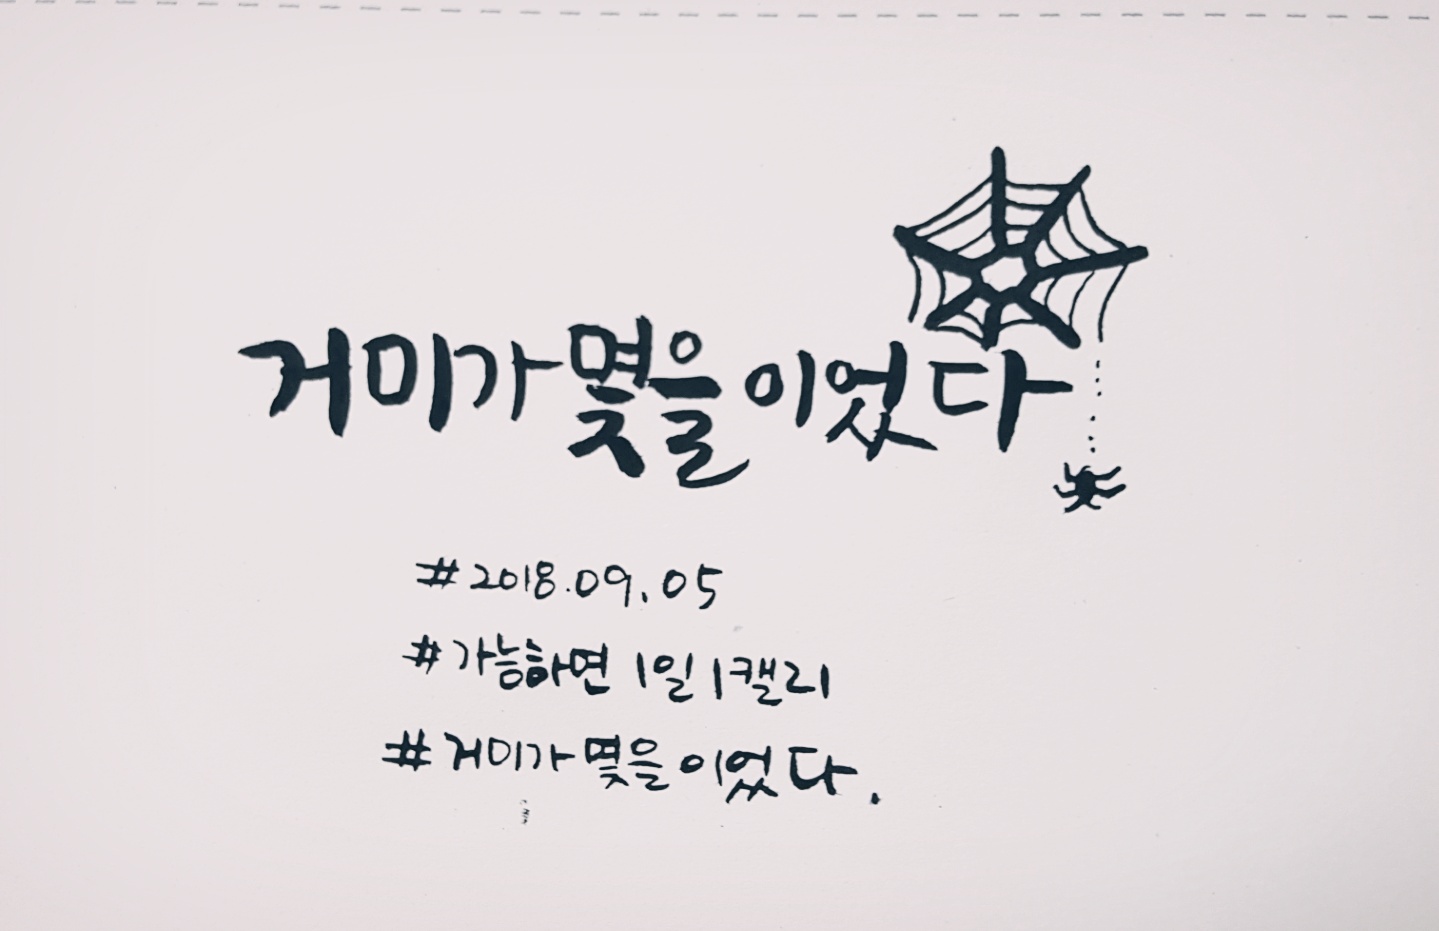 거미가 몇을 이었다
#2018.09.05
#가능하면 1일 1캘리
#거미가 몇을 이었다.